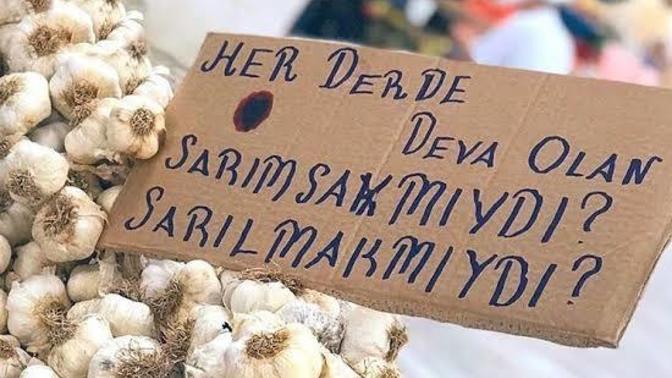 HER DERDE
DEVA OLAN
SARIMSAKMIYDI?
SARILMAKMIYDI?